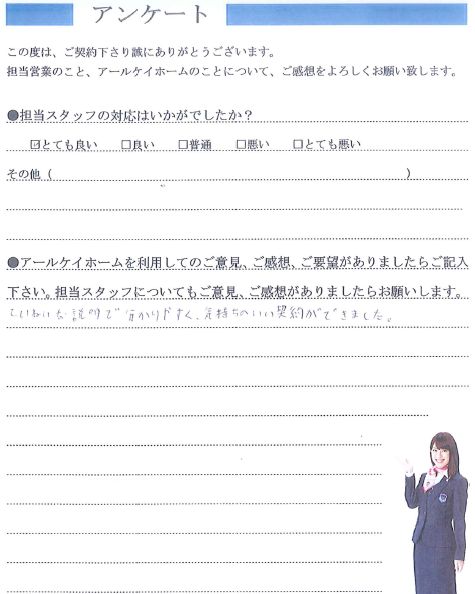 アンケート
この度は、ご契約下さり誠にありがとうございます。
担当営業のこと、アールケイホームのことについて、ご感想をよろしくお願い致します。
●担当スタッフの対応はいかがでしたか？
☑とても良い　□良い　□普通　□悪い　□とても悪い
その他（　　　　　　　　　　　　　　　　　　　　）
●アールケイホームを利用してのご意見、ご感想、ご要望がありましたらご記入
下さい。担当スタッフについてもご意見、ご感想がありましたらお願いします。
ていねいな説明で分かりやすく、気持ちのいい契約ができました。